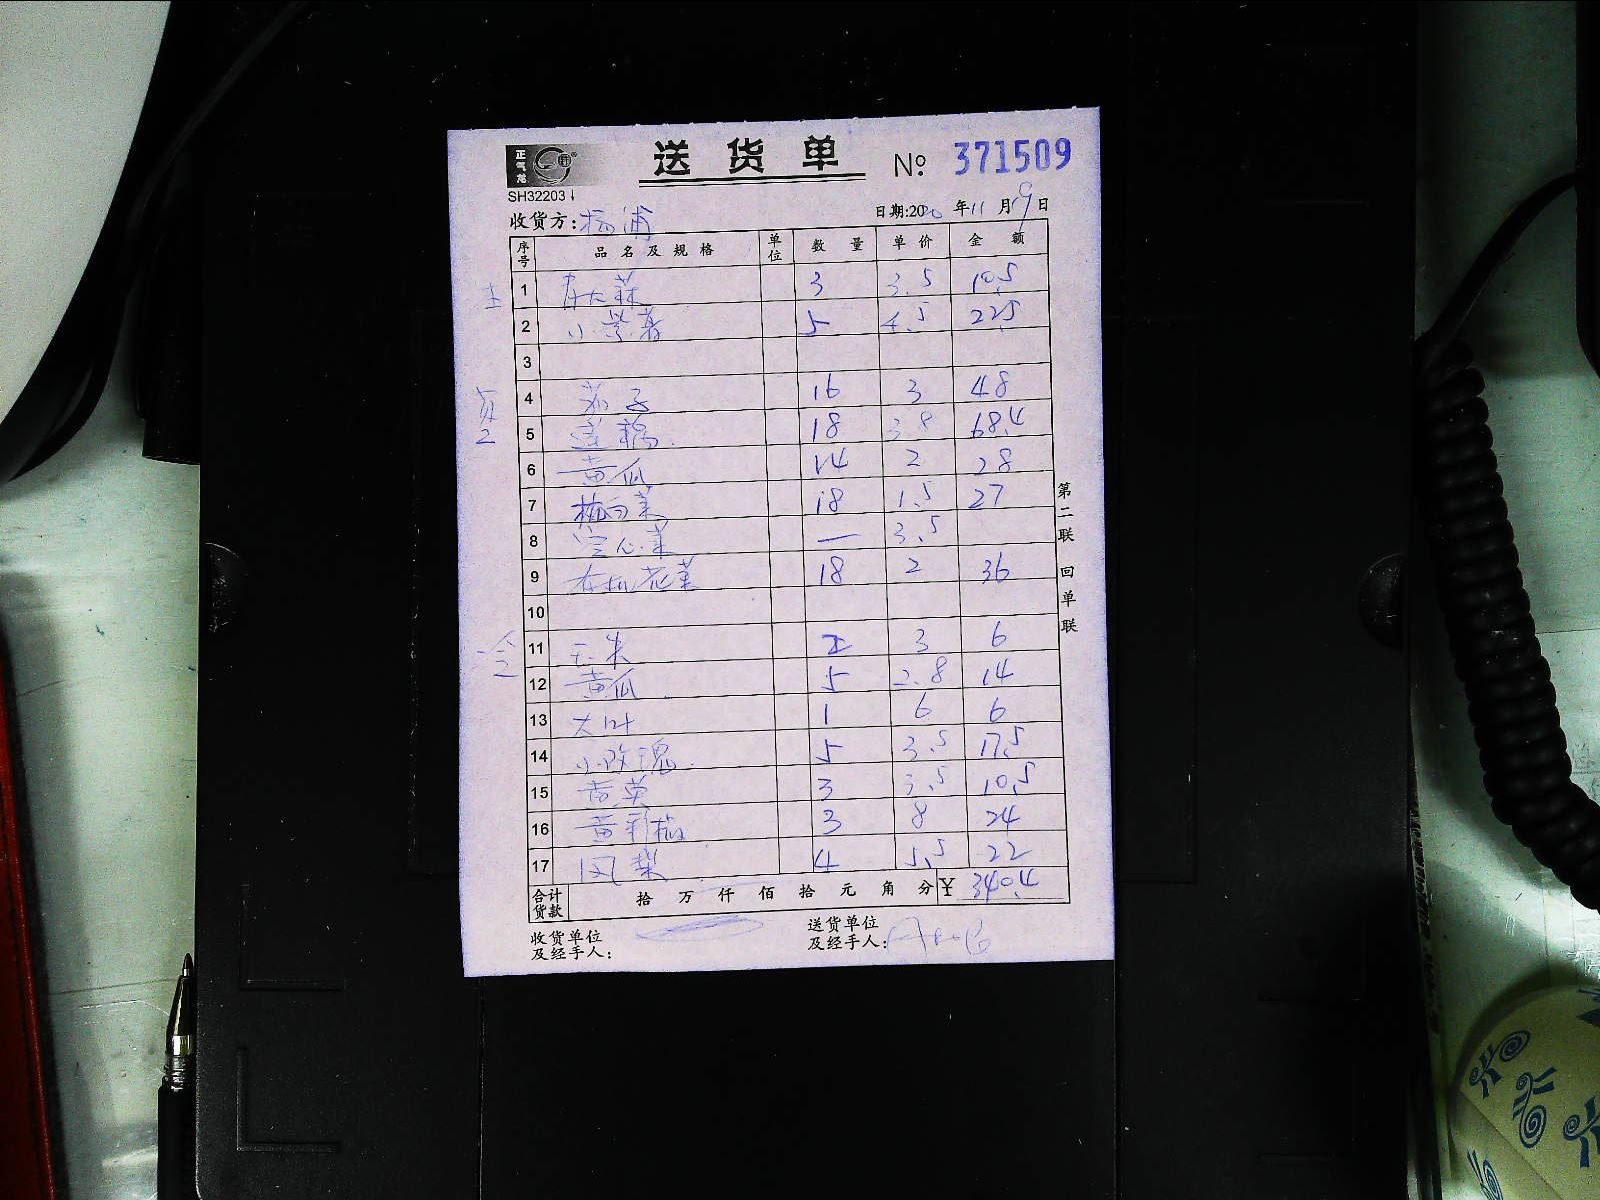 正气龙
送 货 单 № 371509
SH32203
收货方: 杨浦 日期:2020 年 11 月 19 日
序号 品 名 及 规 格 单位 数 量 单 价 金 额
1 3 3.5 10.5
2 小紫薯 5 4.5 22.5
3
4 茄子 16 3 48
5 莲藕 18 3.8 68.4
6 黄瓜 14 2 28
7 梅白菜 18 1.5 27
8 空心菜 — 3.5
9 有机花菜 18 2 36
10
冷
11 玉米 2 3 6
12 黄瓜 5 2.8 14
13 大叶 1 6 6
14 小玫瑰 5 3.5 17.5
15 3 3.5 10.5
16 黄彩椒 3 8 24
17 凤梨 4 5.5 22
合计货款 拾 万 仟 佰 拾 元 角 分 ¥ 340.4
收货单位及经手人:
送货单位及经手人:
第二联 回单联